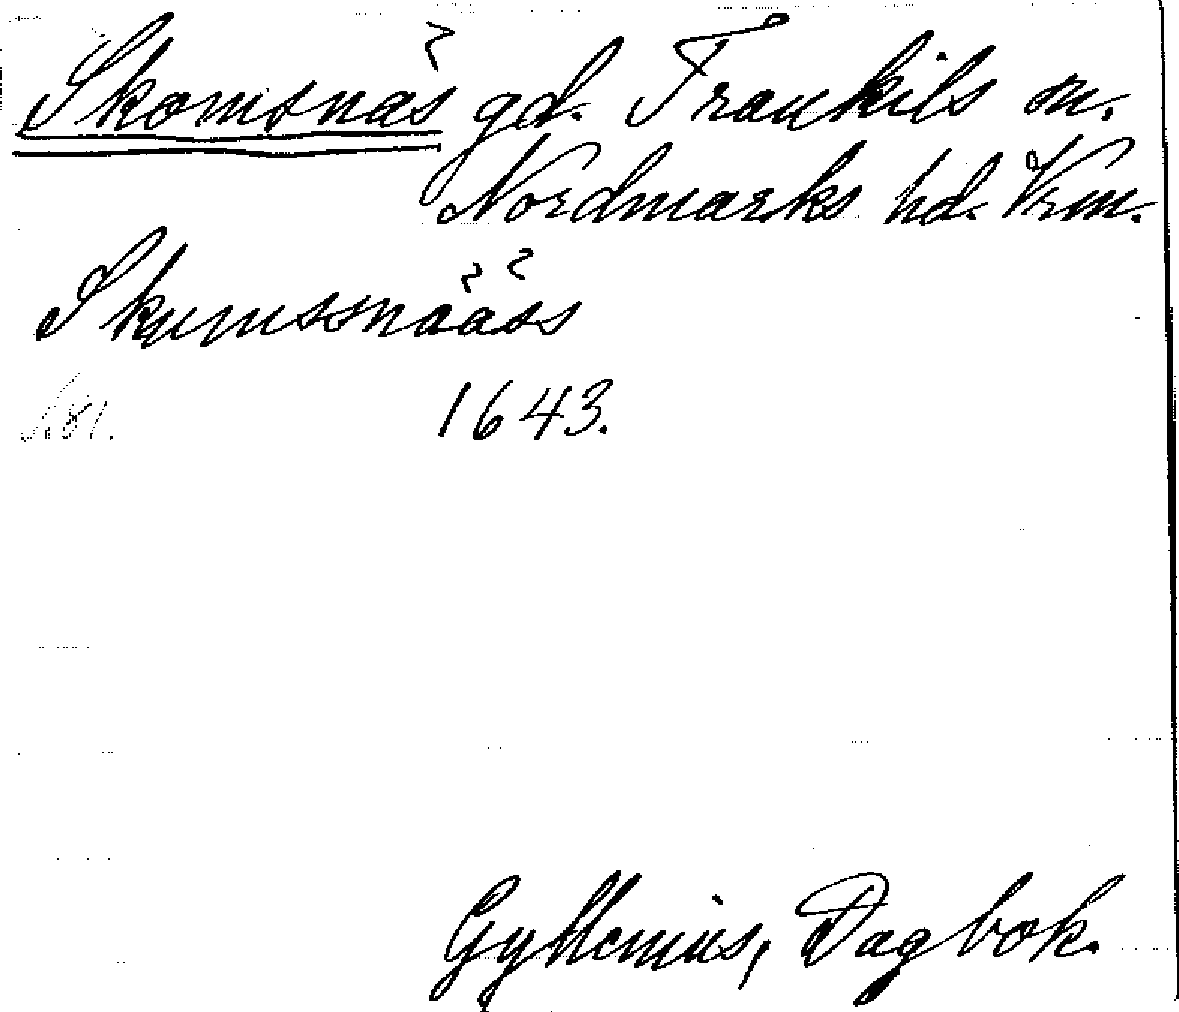 Skomsnäs gd. Trankils sn.
Nordmarks hd. Vrm.
Skumssnääss
S. 81. 1643.
Gyllenius, Dagbok.